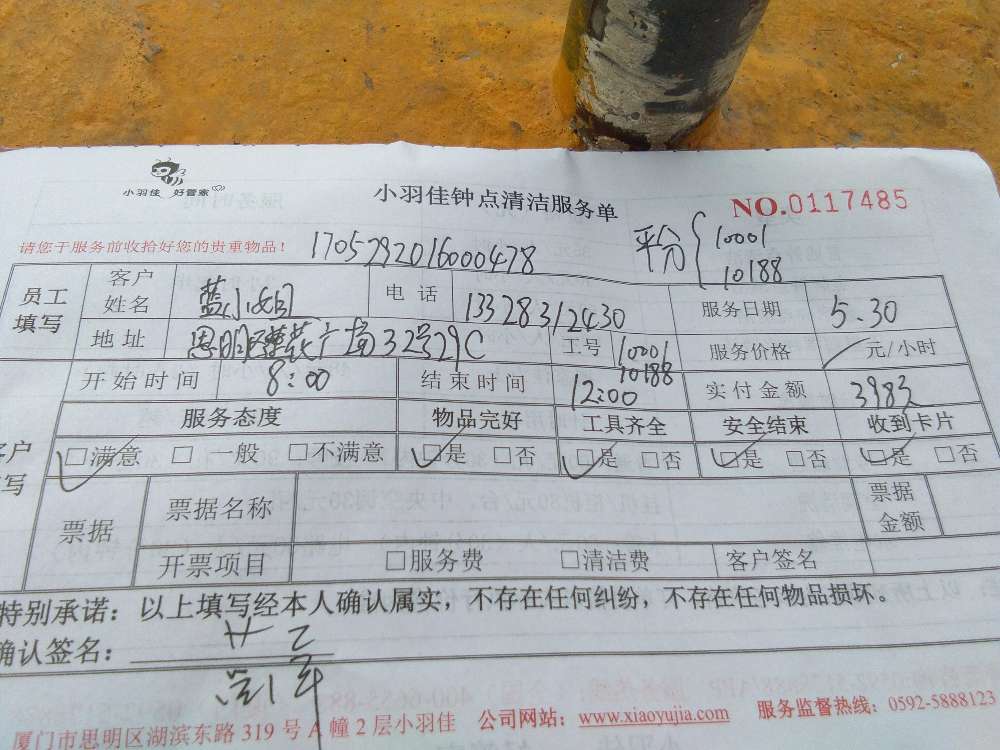 小羽佳 好管家
小羽佳钟点清洁服务单
NO.0117485
请您于服务前收拾好您的贵重物品！
1705292016000478
平分 { 10001
10188
员工填写 客户姓名 蓝小姐 电话 13328312430 服务日期 5.30
地址 思明区 广场32号29C 工号 10001 10188 服务价格 元/小时
开始时间 8:00 结束时间 12:00 实付金额 398元
服务态度 物品完好 工具齐全 安全结束 收到卡片
□满意 □一般 □不满意 □是 □否 □是 □否 □是 □否 □是 □否
票据 票据名称 票据金额
开票项目 □服务费 □清洁费 客户签名
特别承诺：以上填写经本人确认属实，不存在任何纠纷，不存在任何物品损坏。
确认签名：
厦门市思明区湖滨东路 319 号 A 幢 2 层小羽佳 公司网站：www.xiaoyujia.com 服务监督热线：0592-5888123